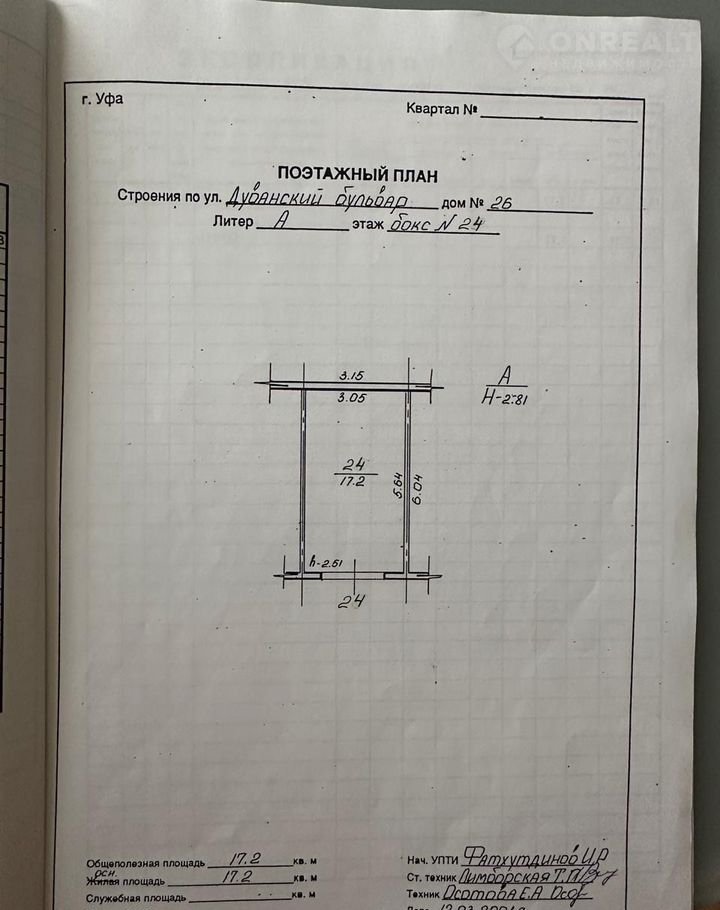 ONREALT
НЕДВИЖИМОСТЬ
г. Уфа
Квартал №
ПОЭТАЖНЫЙ ПЛАН
Строения по ул. Дуванский бульвар дом № 26
Литер А этаж бокс N 24
3.15
3.05
А
Н-2.81
24
17.2
5.64
6.04
h-2.51
24
Общеполезная площадь 17.2 кв. м
Нач. УПТИ Фатхутдинов И.Р
осн.
Жилая площадь 17.2 кв. м
Ст. техник Лимборская Т.П
Служебная площадь кв. м
Техник Осотова Е.А